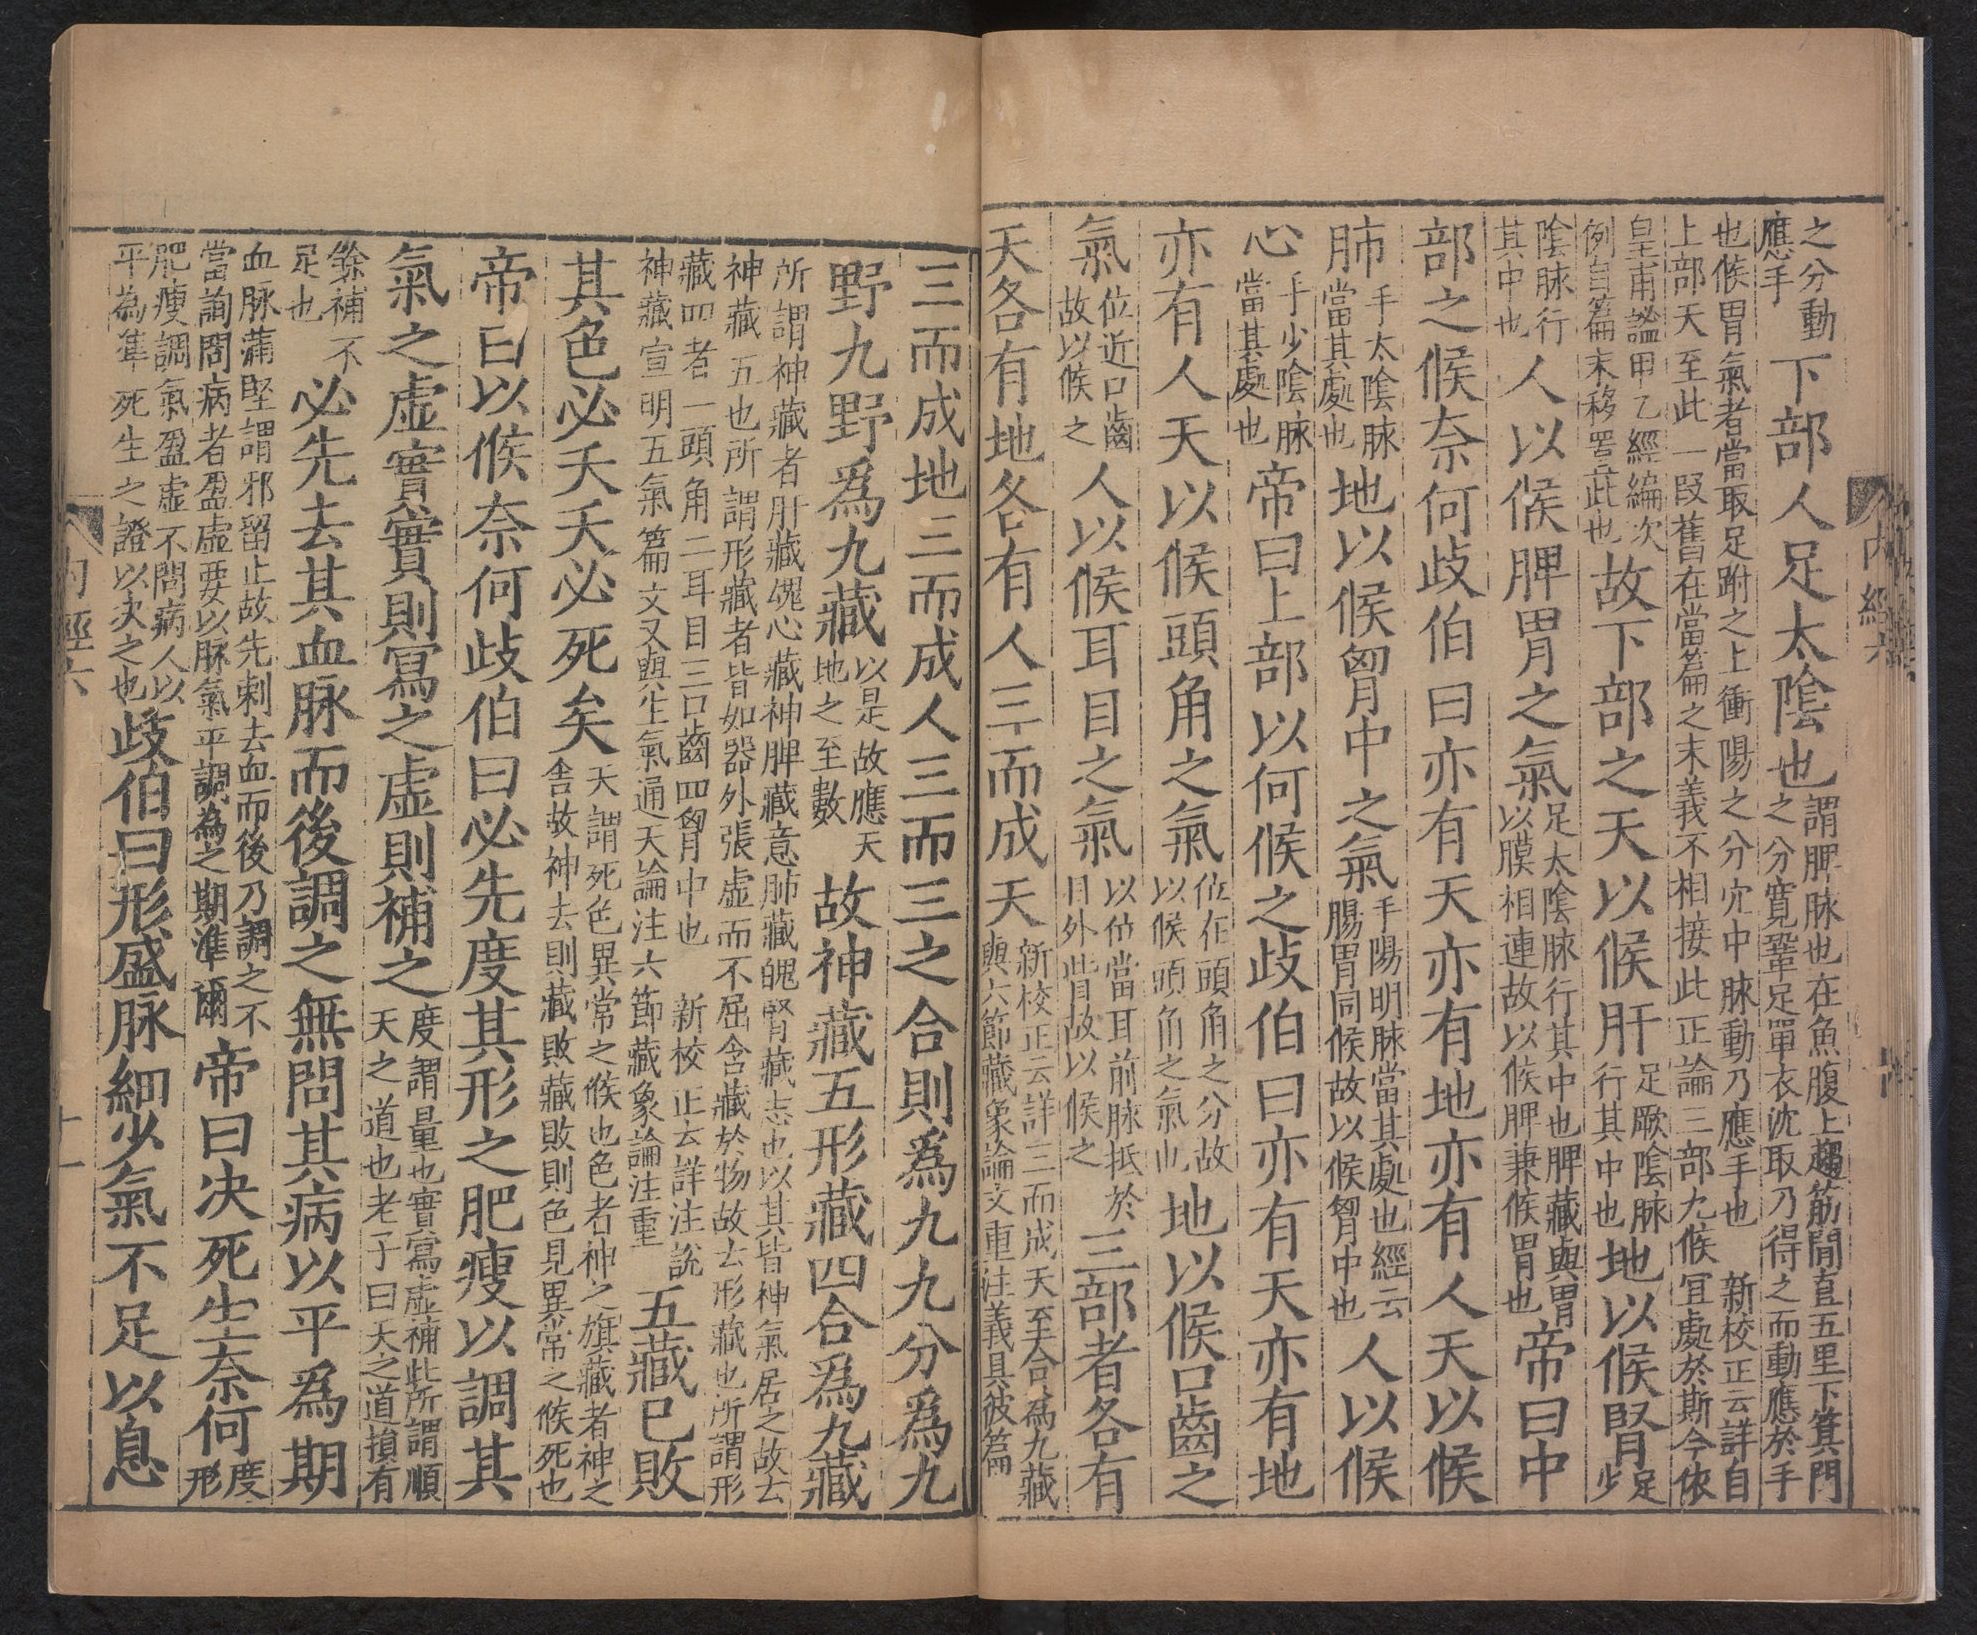 之分動應手下部人足太陰也謂脾脉也在魚腹上越筋間直五里下箕門之分寛鞏足單衣沈取乃得之而動應於手
也候胃氣者當取足跗之上衝陽之分穴中脉動乃應手也新校正云詳自上部天至此一段舊在當篇之末義不相接此正論三部九候宜處於斯今依
皇甫謐甲乙經編次例自篇末移置此也故下部之天以候肝足厥陰脉行其中也地以候腎足少
陰脉行其中也人以候脾胃之氣足太陰脉行其中也脾藏與胃以膜相連故以候脾兼候胃也帝曰中
部之候奈何歧伯曰亦有天亦有地亦有人天以候
肺手太陰脉當其處也地以候胷中之氣手陽明脉當其處也經云腸胃同候故以候胷中也人以候
心手少陰脉當其處也帝曰上部以何候之歧伯曰亦有天亦有地
亦有人天以候頭角之氣位在頭角之分故以候頭角之氣也地以候口齒之
氣位近口齒故以候之人以候耳目之氣以位當耳前脉抵於目外眥故以候之三部者各有
天各有地各有人三而成天新校正云詳三而成天至合爲九藏與六節藏象論文重注義具彼篇
三而成地三而成人三而三之合則爲九九分爲九
野九野爲九藏以是故應天地之至數故神藏五形藏四合爲九藏
所謂神藏者肝藏魂心藏神脾藏意肺藏魄腎藏志也以其皆神氣居之故云神藏五也所謂形藏者皆如器外張虛而不屈含藏於物故云形藏也所謂形
藏四者一頭角二耳目三口齒四胷中也新校正云詳注說神藏宣明五氣篇文又與生氣通天論注六節藏象論注重五藏已敗
其色必夭夭必死矣夭謂死色異常之候也色者神之旗藏者神之舍故神去則藏敗藏敗則色見異常之候死也
帝曰以候奈何歧伯曰必先度其形之肥瘦以調其
氣之虛實實則寫之虛則補之度謂量也實寫虛補此所謂順天之道也老子曰天之道損有
餘補不足也必先去其血脉而後調之無問其病以平爲期
血脉滿堅謂邪留止故先刺去血而後乃調之不當詢問病者盈虛要以脉氣平調為之期準爾帝曰决死生奈何度形
肥瘦調氣盈虛不問病人以平為準死生之證以决之也歧伯曰形盛脉細少氣不足以息
内經六
内經六
十一